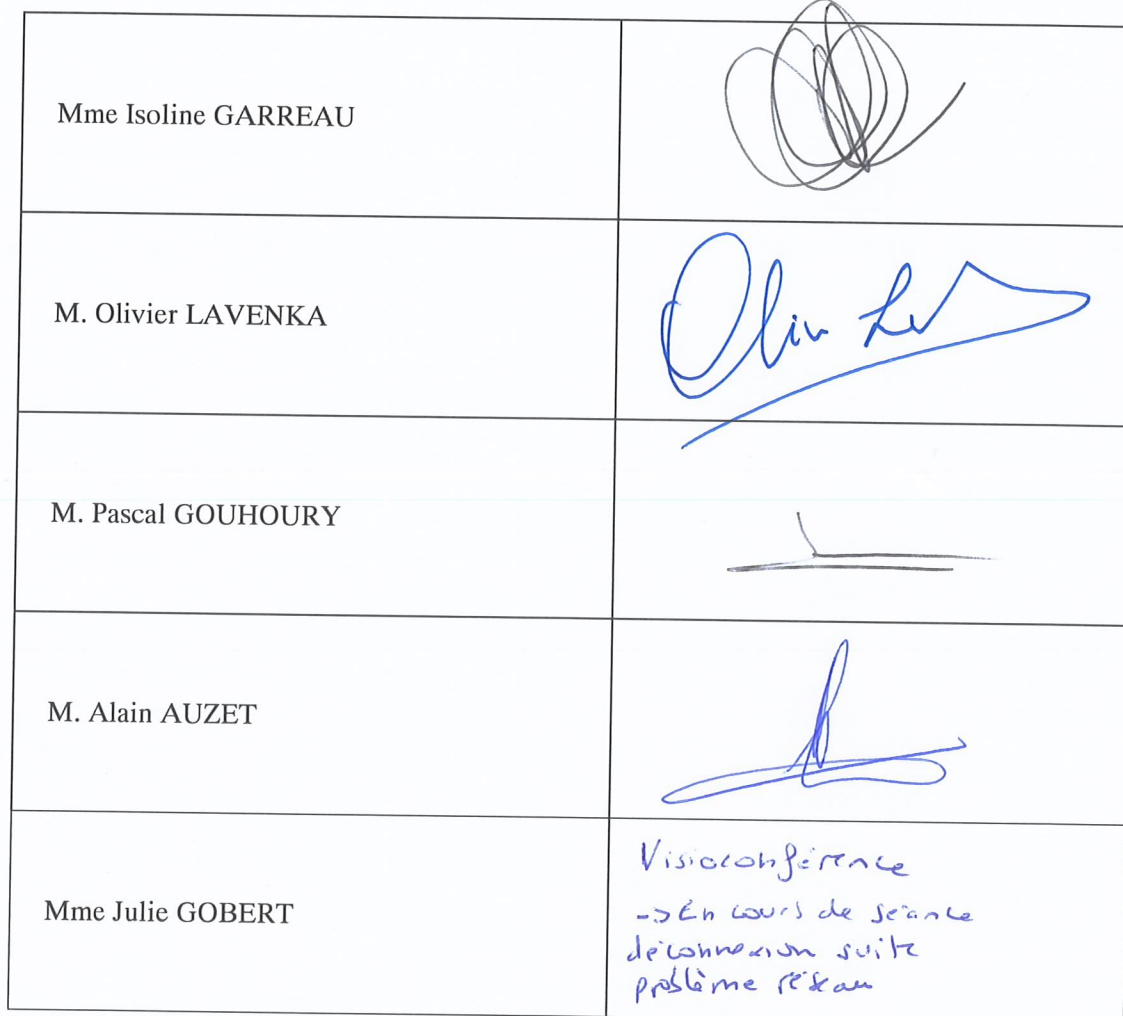 Mme Isoline GARREAU
M. Olivier LAVENKA
M. Pascal GOUHOURY
M. Alain AUZET
Mme Julie GOBERT
Visioconférence
-> En cours de séance
déconnexion suite
problème réseau